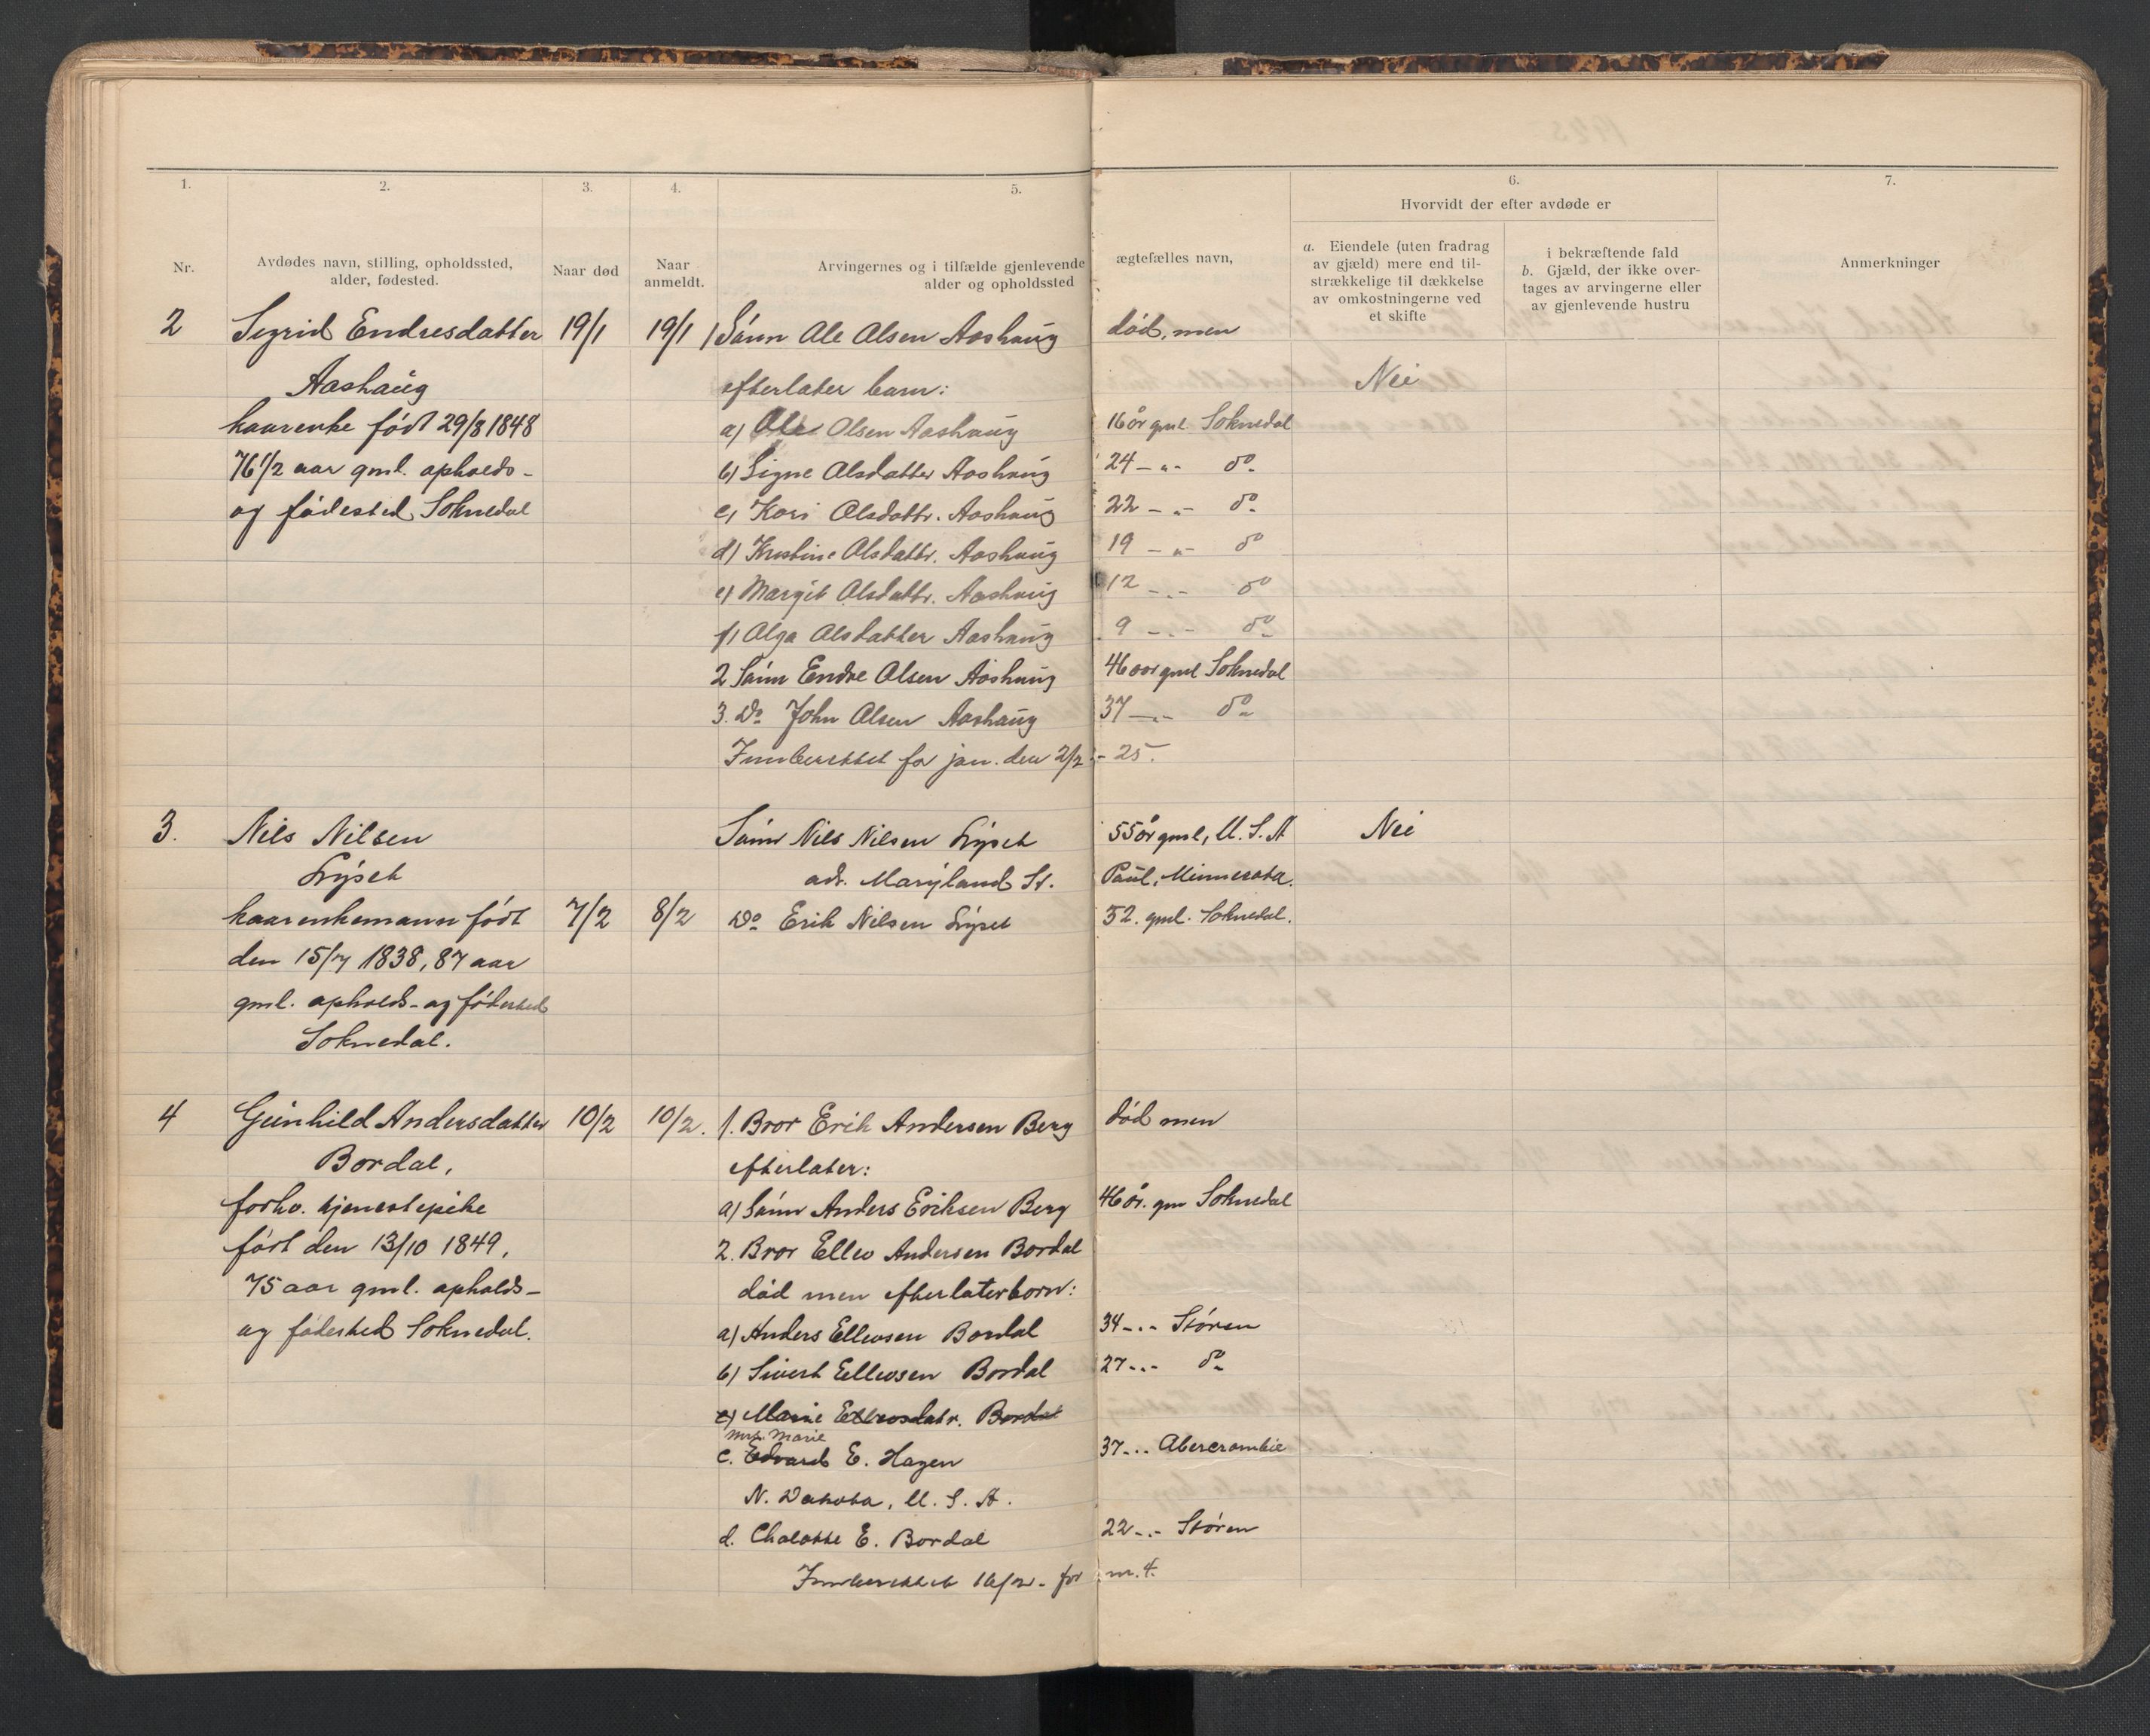 1. 2. 3. 4. 5. 6. 7.
Hvorvidt der efter avdøde er
Nr.
Avdødes navn, stilling, opholdssted,
alder, fødested.
Naar død
Naar
anmeldt.
Arvingernes og i tilfælde gjenlevende ægtefælles navn,
alder og opholdssted
a. Eiendele (uten fradrag
av gjæld) mere end til-
strækkelige til dækkelse
av omkostningerne ved
et skifte
i bekræftende fald
b. Gjæld, der ikke over-
tages av arvingerne eller
av gjenlevende hustru
Anmerkninger
2 Sigrid Endresdatter 19/1 19/1 1 Sønn Ole Olsen Aashaug død, men
Aashaug efterlater barn: Nei
kaarenke født 29/8 1848 a) Ole Olsen Aashaug 16 år gml. Soknedal
76 1/2 aar gml. opholds- b) Signe Olsdatter Aashaug 24 -"- do
og fødested Soknedal c) Kari Olsdattr. Aashaug 22 -"- do
d) Kristine Olsdattr. Aashaug 19 -"- do
e) Margit Olsdattr. Aashaug 12 -"- do
f) Olga Olsdatter Aashaug 9 -"- do
2 Sønn Endre Olsen Aashaug 46 aar gml Soknedal
3. Do John Olsen Aashaug 37 -"- do
Innberettet for jan. den 2/2 - 25.
3. Nils Nilsen Sønn Nils Nilsen Lyset 55 år gml, U. S. A Nei
Lyset adr. Maryland St. Paul, Minnesota.
kaarenkemann født 7/2 8/2 Do Erik Nilsen Lyset 52. gml. Soknedal.
den 15/7 1838, 87 aar
gml. opholds- og fødested
Soknedal.
4 Gunhild Andersdatter 10/2 10/2. 1. Bror Erik Andersen Berg død men
Bordal, efterlater:
forhv. tjenestepike a) Sønn Anders Eriksen Berg 46 år. gm Soknedal
født den 13/10 1849, 2. Bror Ellev Andersen Bordal
75 aar gml. opholds- død men efterlater born:
og fødested Soknedal. a) Anders Ellevsen Bordal 34 -"- Støren
b) Sivert Ellevsen Bordal 27 -"- do
c) Marie Ellevsdatr. Bordal
Mrs. Marie
c. Edvard E. Hagen 37 -"- Abercrombie
N. Dakota, U. S. A.
d. Chalotte E. Bordal 22 -"- Støren
Innberettet 16/2 - for nr. 4.